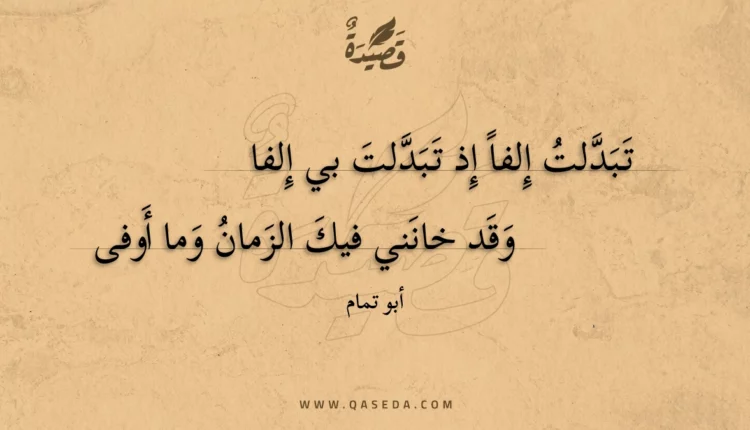 قَصِيْدَةٌ
تَبَدَّلتُ إِلفاً إِذ تَبَدَّلتَ بي إِلفا
وَقَد خانَني فيكَ الزَمانُ وَما أَوفى
أبو تمام
WWW.QASEDA.COM